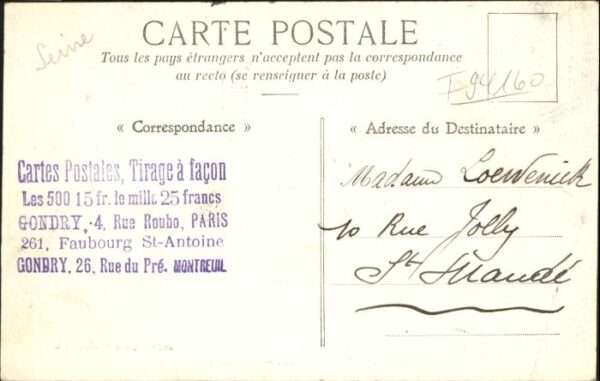 Seine
CARTE POSTALE
Tous les pays étrangers n'acceptent pas la correspondance
au recto (se renseigner à la poste)
F94160
« Correspondance »
« Adresse du Destinataire »
Cartes Postales, Tirage à façon
Les 500 15 fr. le mille 25 francs
GONDRY, 4, Rue Roubo, PARIS
261, Faubourg St-Antoine
GONDRY, 26, Rue du Pré. MONTREUIL
Madame Loewenick
10 Rue Jolly
St Mandé